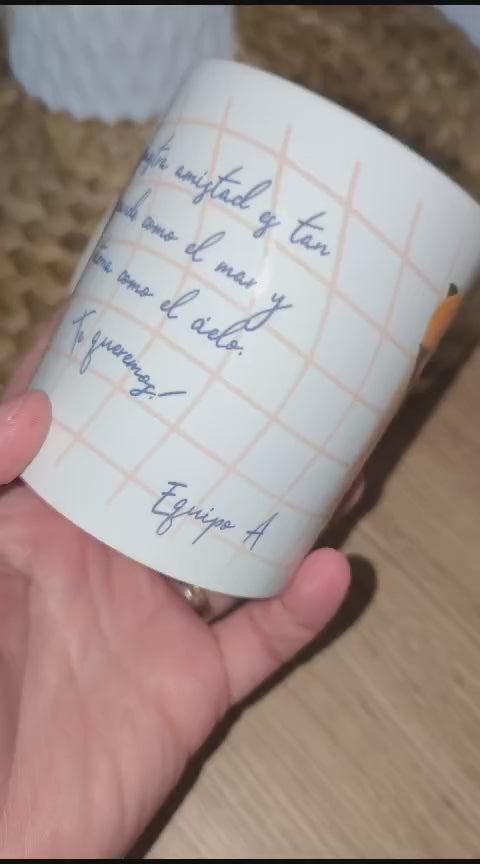 amistad es tan
como el mar y
como el cielo.
Te queremos!
Equipo A